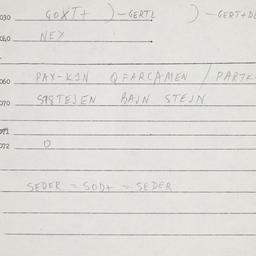 030 GOXT+ )-GERTL )-GERT+DE
040 NEX
060 PAX-KIN QFARCAMEN / PARTK
070 STEJEN BAJN STEJN
071
072 0
SEDER = SOD+ = SEDER